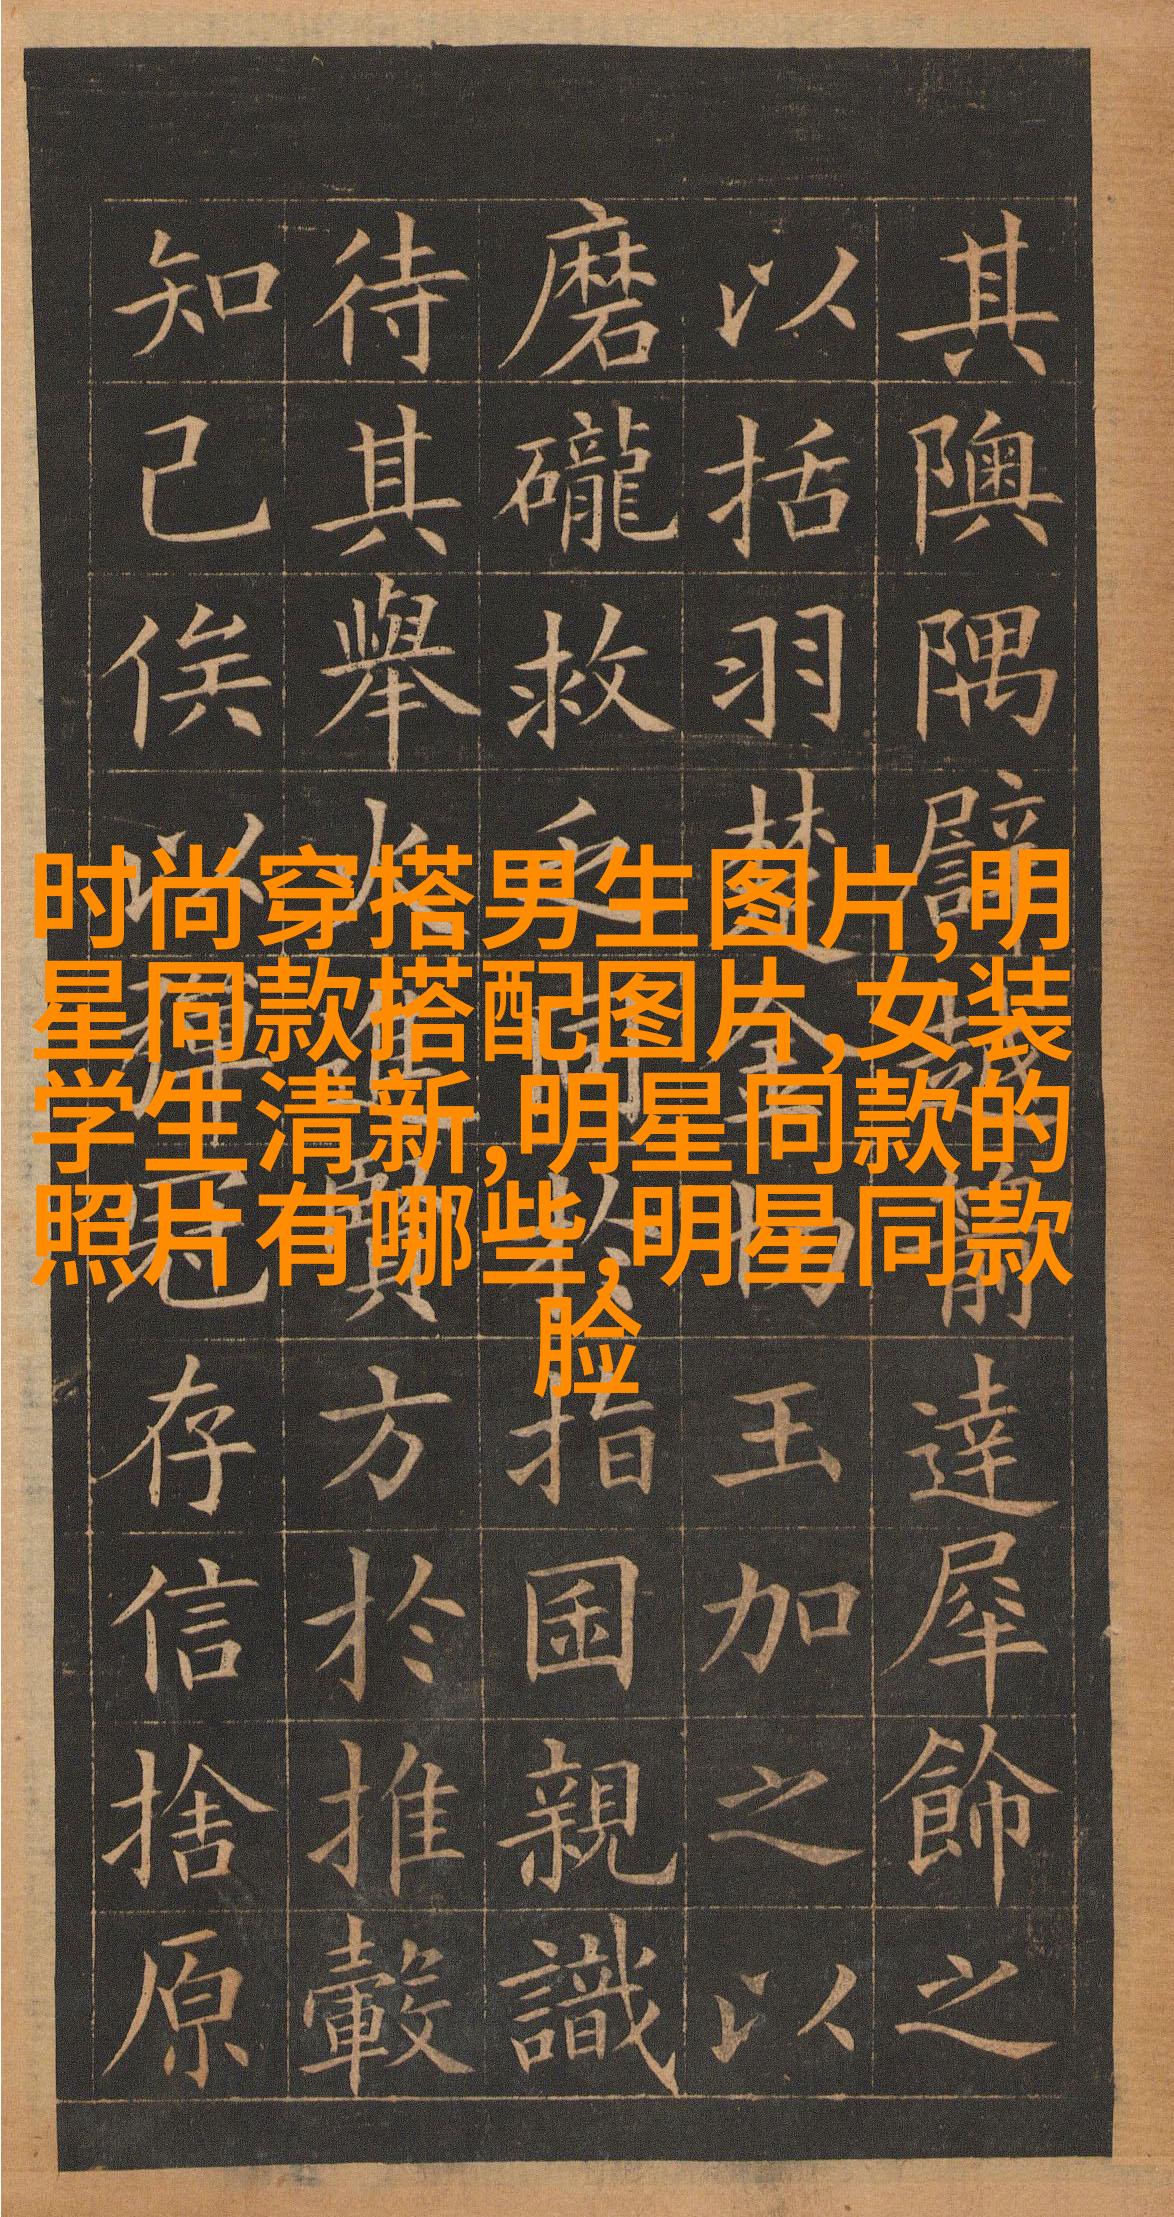 其隩隅譬越箭達犀飾之
以括羽楚金王加之以
磨礲救乏同於指囷親識
待其舉火進賢方於推轂
知己俟以存信捨原
时尚穿搭男生图片,明
星同款搭配图片,女装
学生清新,明星同款的
照片有哪些,明星同款
脸